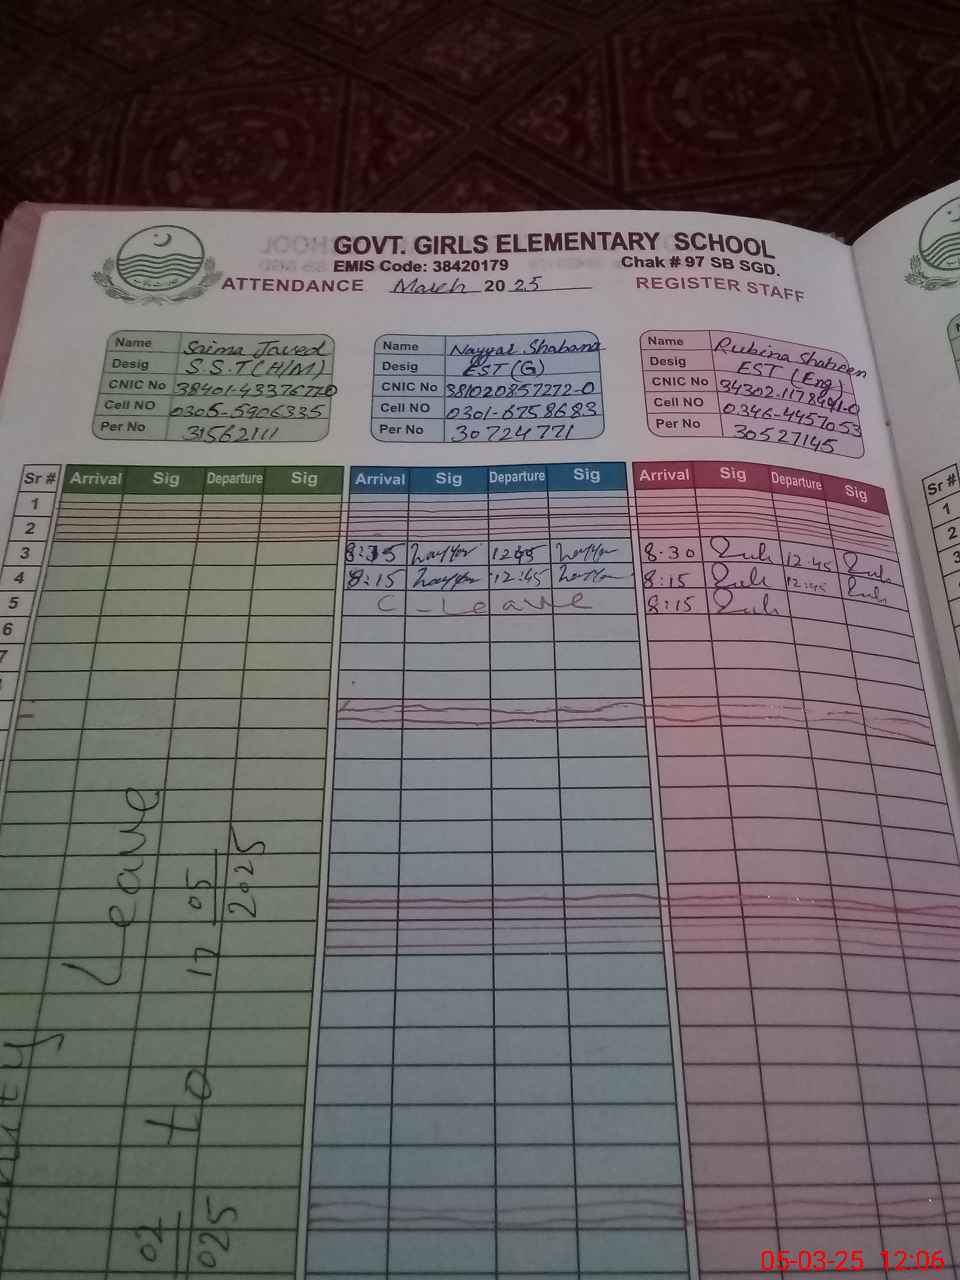 GOVT. GIRLS ELEMENTARY SCHOOL
EMIS Code: 38420179 Chak # 97 SB SGD.
ATTENDANCE March 2025 REGISTER STAFF
Name Saima Javed
Desig S.S.T (H/M)
CNIC No
Cell NO 0306-5906335
Per No 31562111
Name Nayyar Shabana
Desig EST (G)
CNIC No 381020857272-0
Cell NO 0301-6758683
Per No 30724771
Name Rubina Shaheen
Desig EST (Eng)
CNIC No
Cell NO 0346-4457053
Per No 30527145
Sr # Arrival Sig Departure Sig Arrival Sig Departure Sig Arrival Sig Departure Sig Sr #
1 1
2 2
3 12:45 8.30 12.45 3
4 8:15 12:45 8:15 12:45
5 C-Leave 8:15
6
7
Leave
02
025
to
17 05
2025
05-03-25 12:06